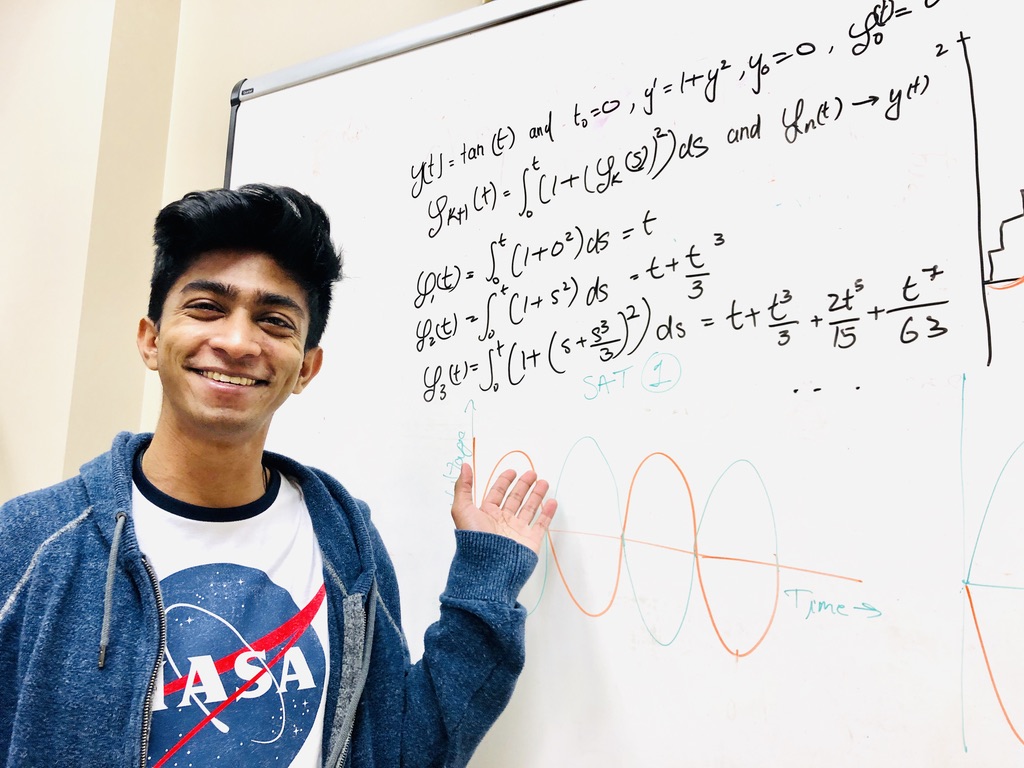 y(t) = tan(t) and t₀=0, y' = 1+y², y₀=0, φ₀(t)=
φₖ₊₁(t) = ∫₀ᵗ (1+(φₖ(s))²)ds and φₙ(t) → y(t)
φ₁(t) = ∫₀ᵗ (1+0²)ds = t
φ₂(t) = ∫₀ᵗ (1+s²) ds = t + t³/3
φ₃(t) = ∫₀ᵗ (1+(s+s³/3)²)ds = t + t³/3 + 2t⁵/15 + t⁷/63
...
SAT 1
Time →
2
NASA